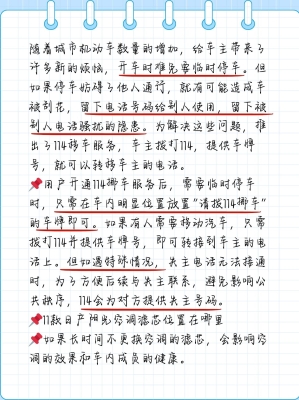 随着城市机动车数量的增加，给车主带来了
许多新的烦恼，开车时难免需临时停车。但
如果停车妨碍了他人通行，就有可能造成车
被刮花，留下电话号码给别人使用，留下被
别人电话骚扰的隐患。为解决这些问题，推
出了114移车服务，车主拨打114，提供车牌
号，就可以转移车主的电话。
📌用户开通114挪车服务后，需要临时停车
时，只需在车内明显位置放置“请拨114挪车”
的车牌即可。如果有人需要移动汽车，只需
拨打114并提供车牌号，即可转接到车主的电
话上。但如遇特殊情况，失主电话无法接通
时，为了方便后续与失主联系，避免影响公
共秩序，114会为对方提供失主号码。
📌11款日产阳光空调滤芯位置在哪里
📌如果长时间不更换空调的滤芯，会影响空
调的效果和车内成员的健康。